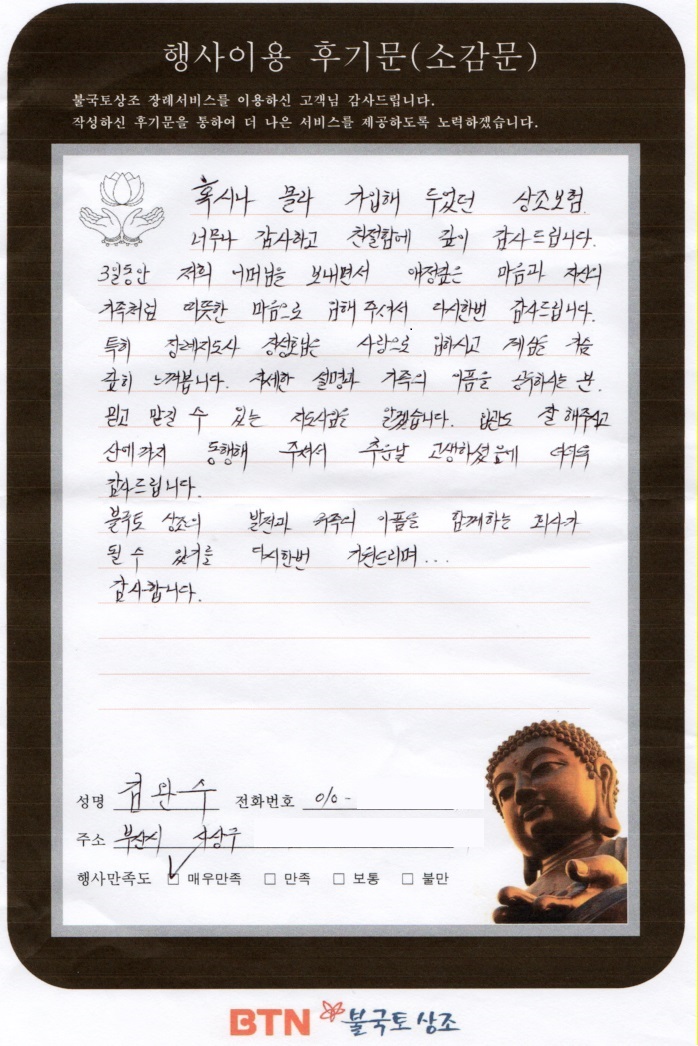 행사이용 후기문(소감문)
불국토상조 장례서비스를 이용하신 고객님 감사드립니다.
작성하신 후기문을 통하여 더 나은 서비스를 제공하도록 노력하겠습니다.
혹시나 몰라 가입해 두었던 상조보험
너무나 감사하고 친절함에 깊이 감사드립니다.
3일동안 저희 어머님을 보내면서 애정깊은 마음과 자신의
가족처럼 따뜻한 마음으로 임해주셔서 다시한번 감사드립니다.
특히 장례지도사 사랑으로 임하시고 계심을 가슴
깊히 느껴봅니다. 자세한 설명과 가족의 아픔을 공유하시는 분.
믿고 맡길 수 있는 지도사임을 알겠습니다. 입관도 잘해주시고
산에까지 동행해 주셔서 추운날 고생하셨음에 더더욱
감사드립니다.
불국토 상조의 발전과 가족의 아픔을 함께하는 회사가
될 수 있기를 다시한번 기원드리며...
감사합니다.
성명 김완수 전화번호 010-
주소 부산시 사상구
행사만족도 ☑ 매우만족 □ 만족 □ 보통 □ 불만
BTN 불국토상조